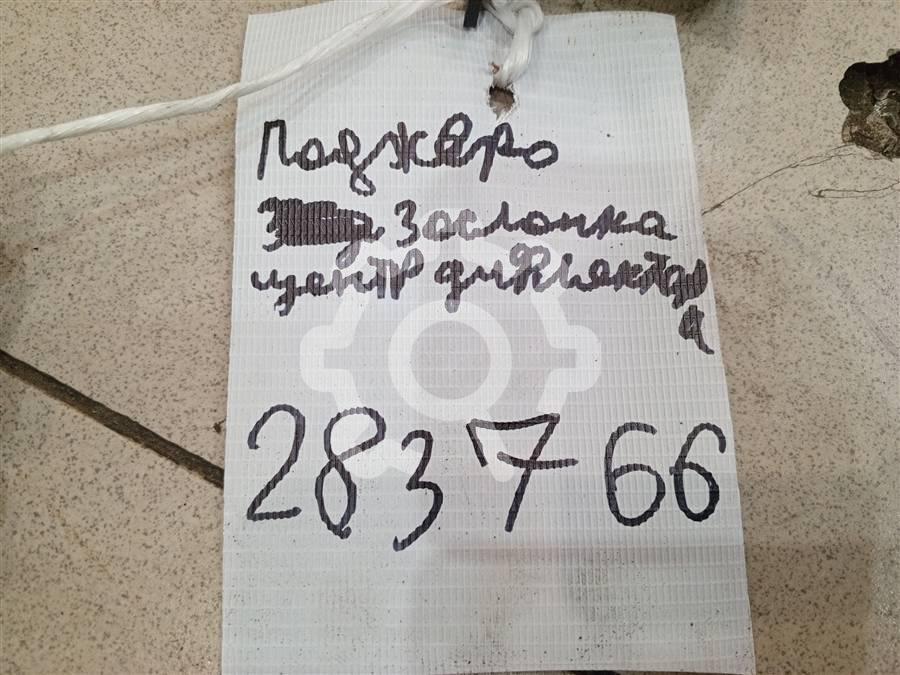 Поджеро
Заслонка
центр дифлектор
а
283766